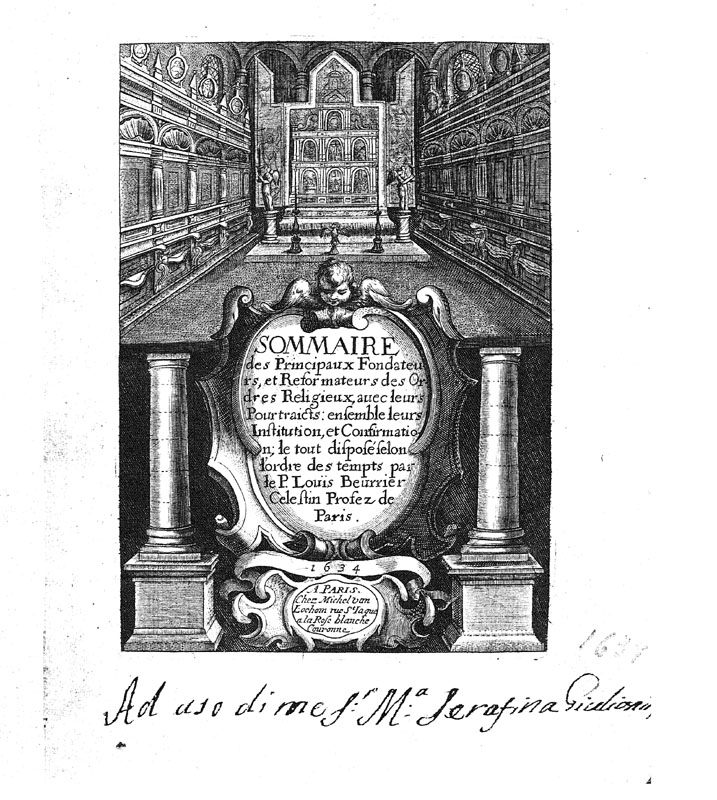 SOMMAIRE
des Principaux Fondateu
rs, et Reformateurs des Or
dres Religieux, auec leurs
Pourtraicts: ensemble leurs
Institution, et Confirmatio
n; le tout disposé selon
l'ordre des tempts par
le P. Louis Beurrier
Celestin Profez de
Paris.
1634
A PARIS.
Chez Michel van
Lochom rue St Iaque
a la Rose blanche
Couronne
Ad uso di me Sr. Ma. Serafina